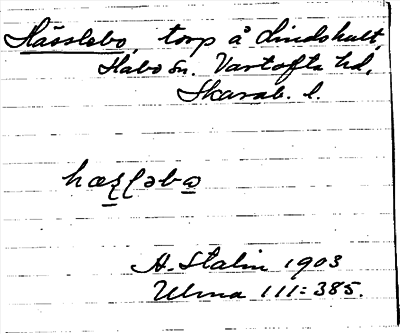 Hässlebo, torp å Lindshult,
Habo sn. Vartofta hd,
Skarab. l
hæʂɭəbɷ
A. Stalin 1903
Ulma 111:385.